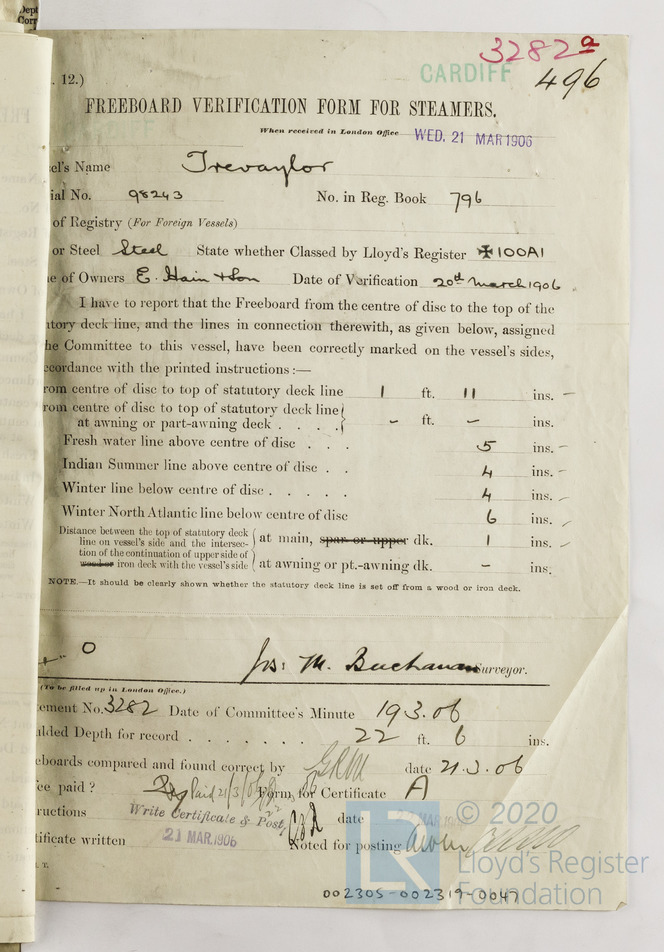 Dept
Corr
3282a
. 12.)
CARDIFF 496
FREEBOARD VERIFICATION FORM FOR STEAMERS.
When received in London Office WED. 21 MAR 1906
el's Name Trevaylor
ial No. 98243 No. in Reg. Book 796
of Registry (For Foreign Vessels)
or Steel Steel State whether Classed by Lloyd's Register ✠100A1
e of Owners E. Hain & Son Date of Verification 20th March 1906
I have to report that the Freeboard from the centre of disc to the top of the
tory deck line, and the lines in connection therewith, as given below, assigned
he Committee to this vessel, have been correctly marked on the vessel's sides,
ccordance with the printed instructions :—
rom centre of disc to top of statutory deck line 1 ft. 11 ins. –
rom centre of disc to top of statutory deck line
at awning or part-awning deck . . . . – ft. – ins.
Fresh water line above centre of disc . . . 5 ins. –
Indian Summer line above centre of disc . . 4 ins. –
Winter line below centre of disc . . . . . 4 ins. –
Winter North Atlantic line below centre of disc 6 ins.
Distance between the top of statutory deck
line on vessel's side and the intersec-
tion of the continuation of upper side of
wood or iron deck with the vessel's side
at main, spar or upper dk. 1 ins.
at awning or pt.-awning dk. – ins.
NOTE.—It should be clearly shown whether the statutory deck line is set off from a wood or iron deck.
0
Jos: M. Buchanan Surveyor.
(To be filled up in London Office.)
ement No. 3282 Date of Committee's Minute 19.3.06
lded Depth for record . . . . . . . 22 ft. 6 ins.
eboards compared and found correct by GRM date 21.3.06
ee paid ? Paid 21/3/06 Form for Certificate A
ructions Write Certificate & Post date
21 MAR.1906
tificate written Noted for posting
. T.
© 2020
LR
Lloyd's Register
Foundation
002305-002319-0047